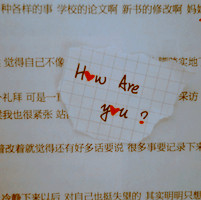 种各样的事 学校的论文啊 新书的修改啊 妈
觉得自己不像
How Are
you?
礼拜 可是一
采访
我也很紧张 站
着改着就觉得还有好多话要说 很多事要记录下来
冷静下来以后 对自己也挺失望的 其实明明只想